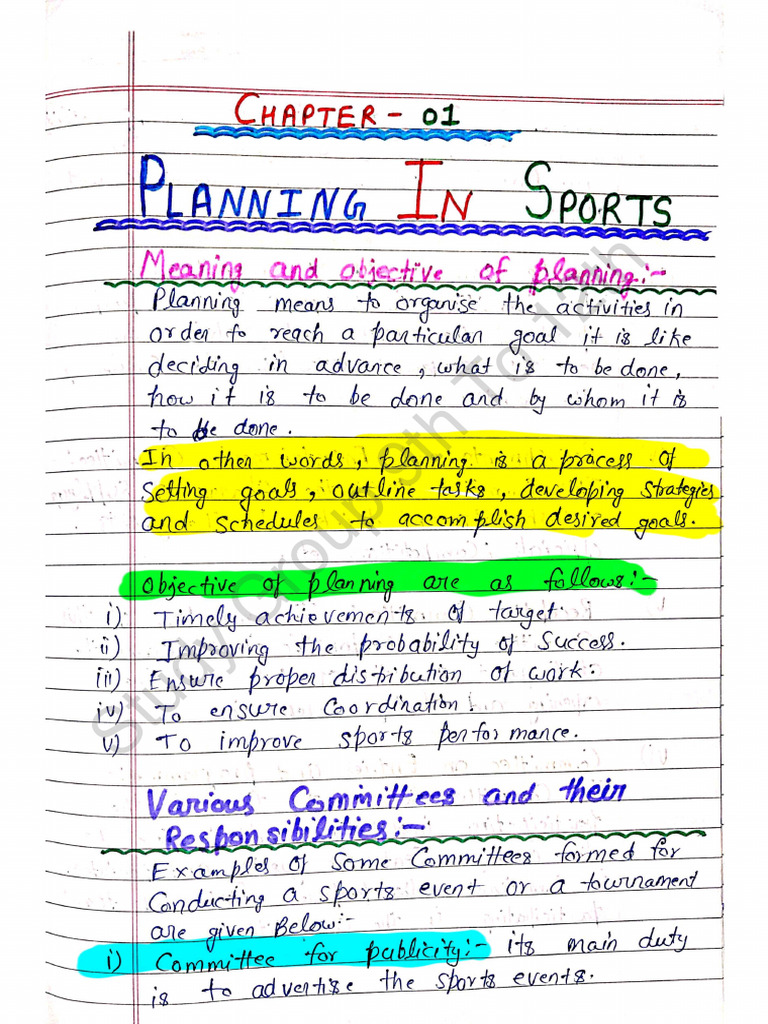 CHAPTER - 01
PLANNING IN SPORTS
Meaning and objective of planning:-
Planning means to organise the activities in
order to reach a particular goal it is like
deciding in advance, what is to be done,
how it is to be done and by whom it is
to be done.
In other words, planning is a process of
setting goals, outline tasks, developing strategies
and schedules to accomplish desired goals.
Objective of planning are as follows:-
i) Timely achievements of target.
ii) Improving the probability of success.
iii) Ensure proper distribution of work.
iv) To ensure coordination.
v) To improve sports performance.
Various Committees and their
Responsibilities:-
Examples of some Committees formed for
Conducting a sports event or a tournament
are given Below:-
i) Committee for publicity:- its main duty
is to advertise the sports events.
Study Group 9th To 12th